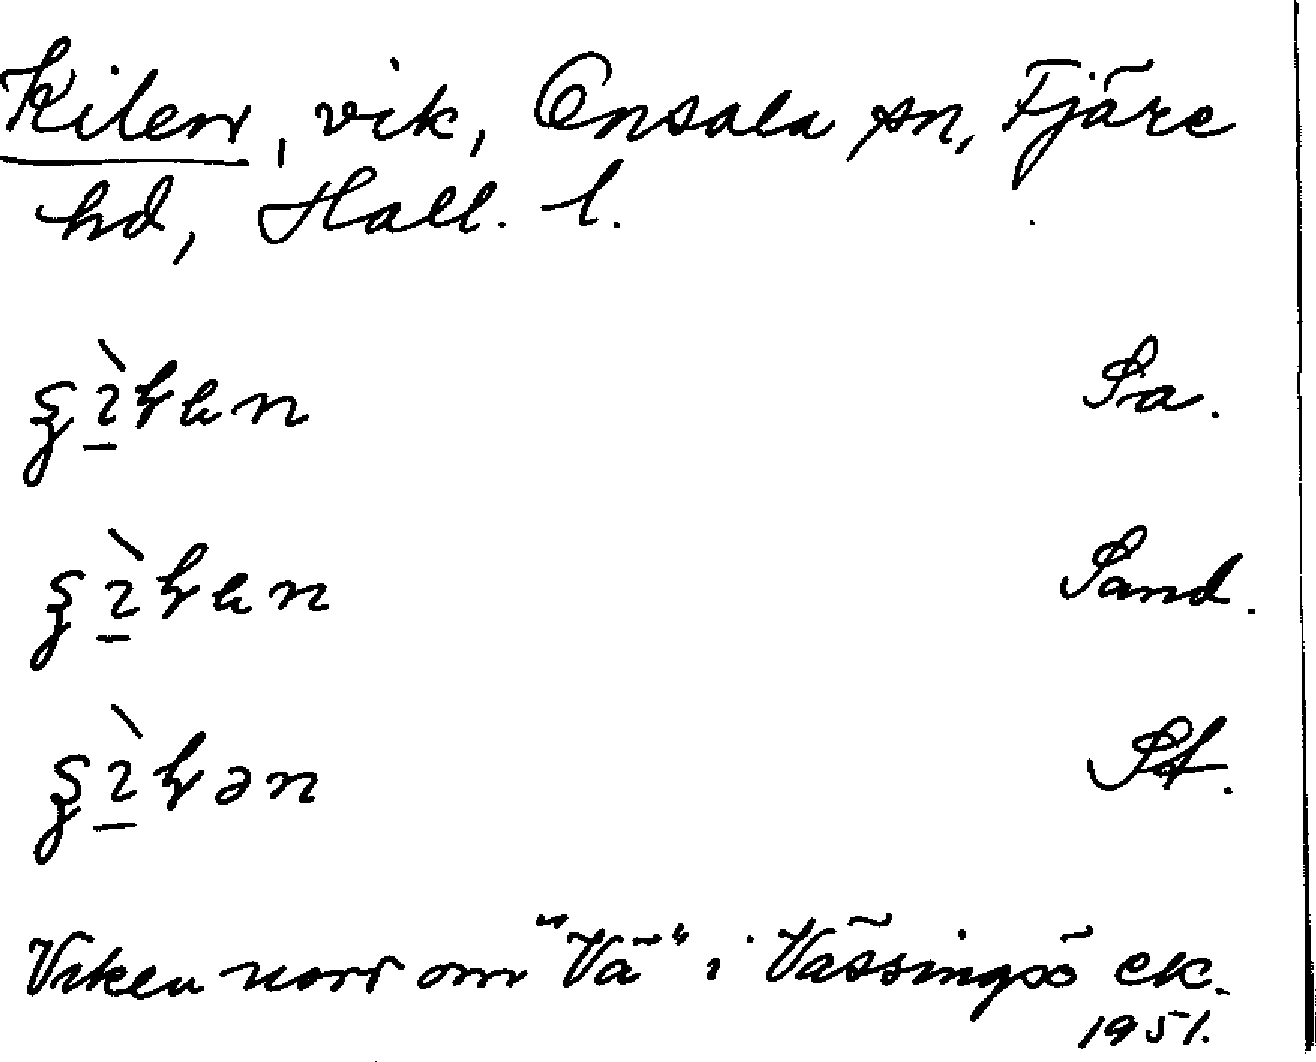 Kilen, vik, Onsala sn, Fjäre
hd, Hall. l.
Sa.
Sand.
St.
Viken norr om "Vä" i Vässingsö ek.
1951.